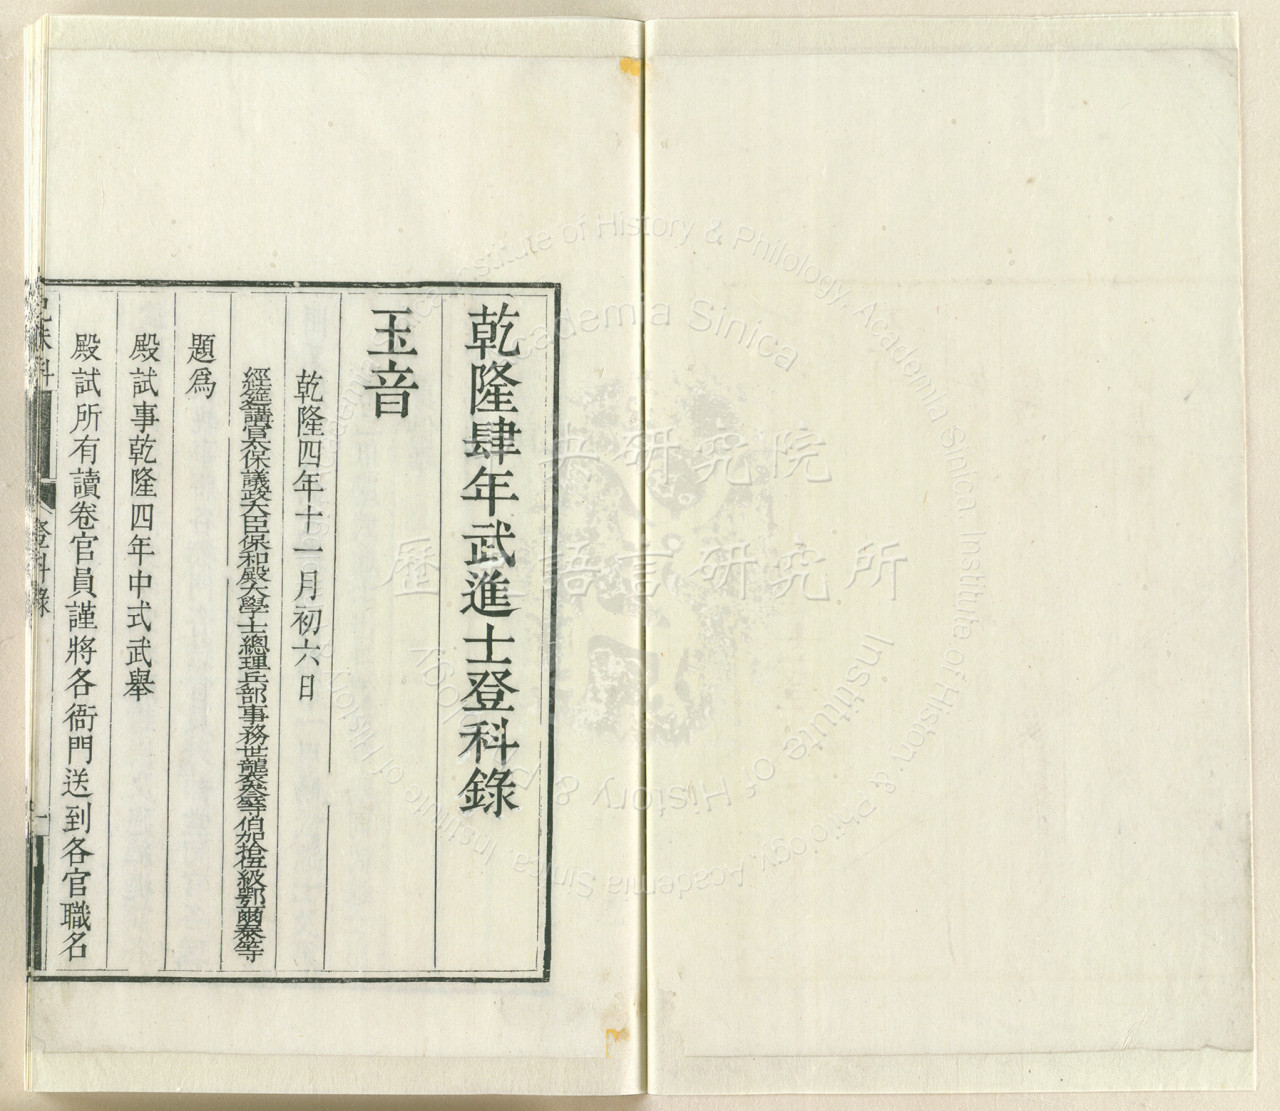 乾隆肆年武進士登科錄
玉音
乾隆四年十一月初六日
經筵講官太保議政大臣保和殿大學士總理兵部事務世襲叄等伯加拾伍級鄂爾泰等
題爲
殿試事乾隆四年中式武舉
殿試所有讀卷官員謹將各衙門送到各官職名
科
登科錄
一
央研究院
歷史語言研究所
Institute of History & Philology, Academia Sinica